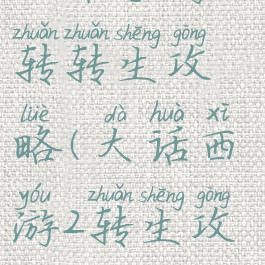 zhuǎn zhuǎn shēng gōng
转转生攻
lüè dà huà xī
略(大话西
yóu zhuǎn shēng gōng
游2转生攻